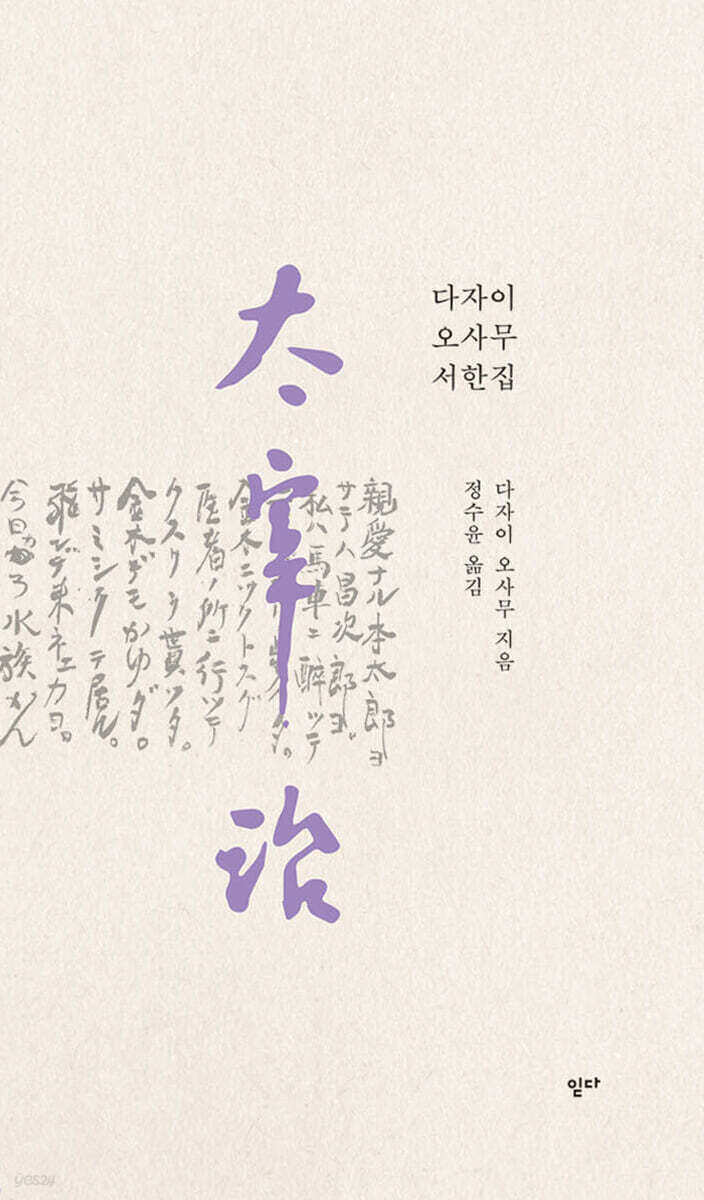 다자이
오사무
서한집
다자이 오사무 지음
정수윤 옮김
太宰治
親愛ナル本太郎ヨ
サテハ昌次郎ヨ
私ハ馬車ニ酔ッテ
金木ニツクトスグ
医者ノ所ニ行ッテ
クスリヲ貰ッタ。
金木デモかゆダ。
サミシクテ居ル。
飛ンデ来ネエカヨ。
水族かん
읻다
yes24